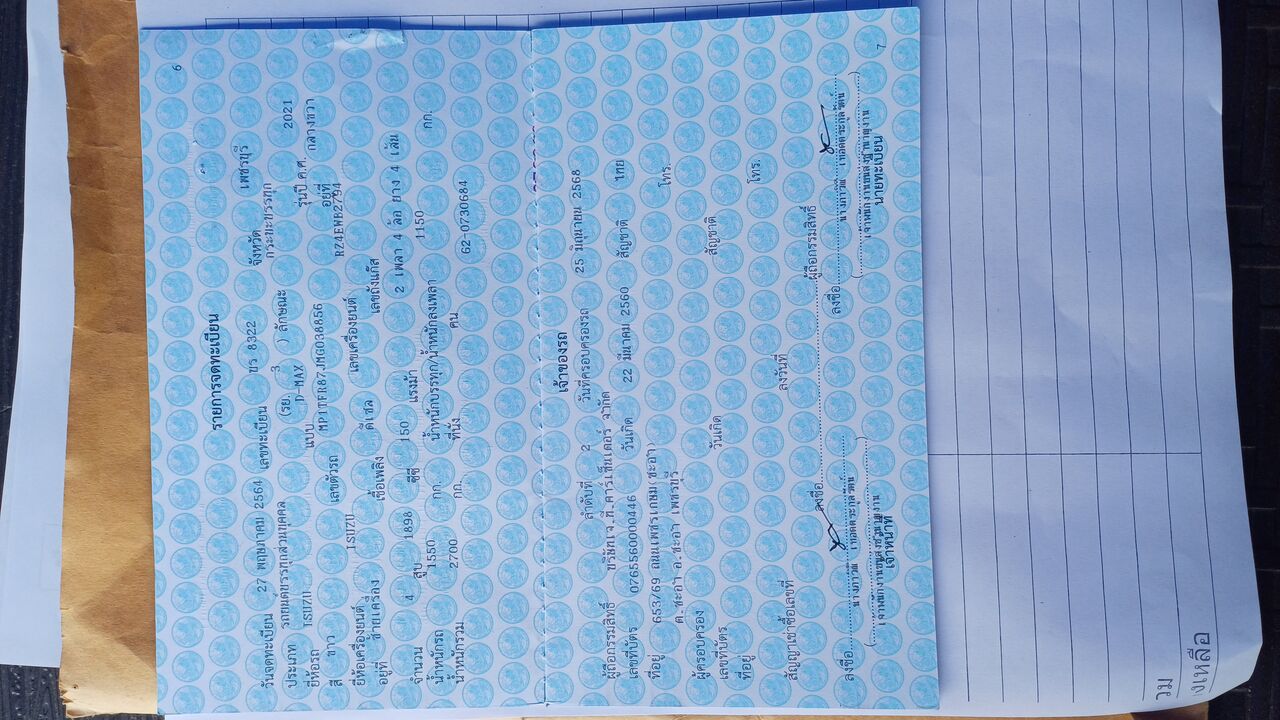 6
รายการจดทะเบียน
วันจดทะเบียน 27 พฤษภาคม 2564 เลขทะเบียน ขร 8322 จังหวัด เพชรบุรี
ประเภท รถยนต์บรรทุกส่วนบุคคล (รย. 3 ) ลักษณะ กระบะบรรทุก
ยี่ห้อรถ ISUZU แบบ D-MAX รุ่นปี ค.ศ. 2021
สี ขาว เลขตัวรถ MP1TFR87JMG038856 อยู่ที่ กลางขวา
ยี่ห้อเครื่องยนต์ ISUZU เลขเครื่องยนต์ RZ4EWB2794
อยู่ที่ ซ้ายเครื่อง เชื้อเพลิง ดีเซล เลขถังแก๊ส
จำนวน 4 สูบ 1898 ซีซี 150 แรงม้า 2 เพลา 4 ล้อ ยาง 4 เส้น
น้ำหนักรถ 1550 กก. น้ำหนักบรรทุก/น้ำหนักลงเพลา 1150 กก.
น้ำหนักรวม 2700 กก. ที่นั่ง คน 62-0730684
เจ้าของรถ
ลำดับที่ 2 วันที่ครอบครองรถ 25 มิถุนายน 2568
ผู้ถือกรรมสิทธิ์ บริษัทเจ.ที.คาร์เซ็นเตอร์ จำกัด
เลขที่บัตร 0765560000446 วันเกิด 22 มีนาคม 2560 สัญชาติ ไทย
ที่อยู่ 653/69 ถนนเพชรเกษม(ชะอำ) โทร.
ต.ชะอำ อ.ชะอำ เพชรบุรี
ผู้ครอบครอง
เลขที่บัตร วันเกิด สัญชาติ
ที่อยู่ โทร.
สัญญาเช่าซื้อเลขที่ ลงวันที่
ลงชื่อ ผู้ถือกรรมสิทธิ์
ลงชื่อ ลงชื่อ
เจ้าพนักงานขนส่งชำนาญงาน เจ้าพนักงานขนส่งชำนาญงาน
เจ้าหน้าที่ นายทะเบียน
7
วม
งเหลือ